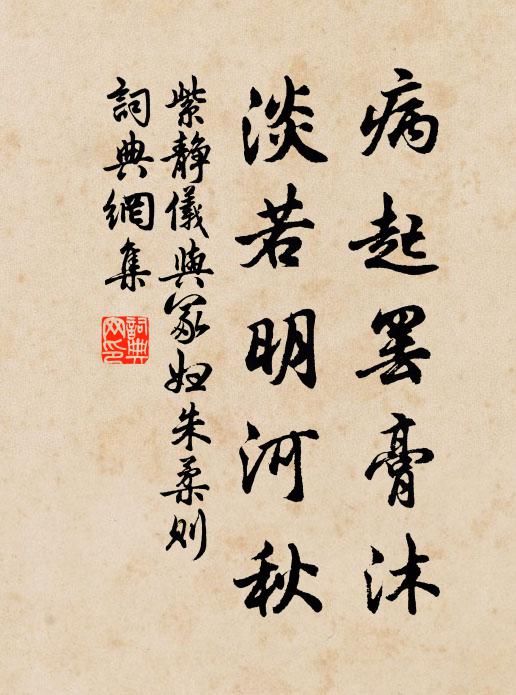 病起罢膏沐
淡若明河秋
紫静儀與冢妇朱柔则
詞典網集
詞典网印